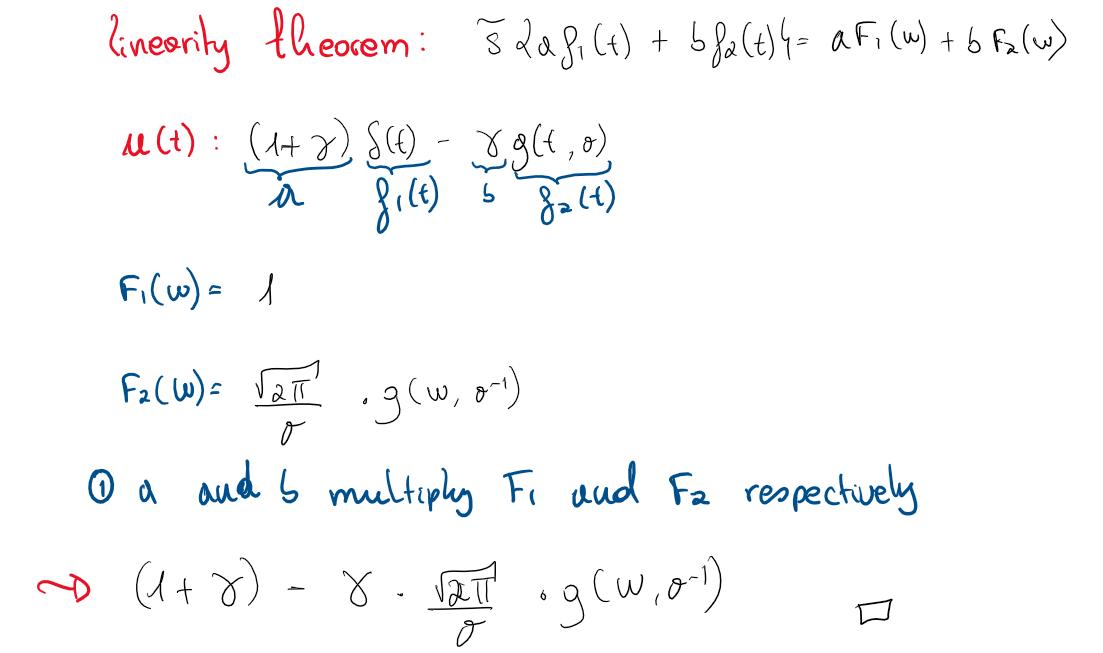 linearity theorem: ℱ{a f₁(t) + b f₂(t)} = a F₁(w) + b F₂(w)
u(t) : (1+γ) δ(t) - γ g(t, σ)
a f₁(t) b f₂(t)
F₁(w) = 1
F₂(w) = √2π / σ · g(w, σ⁻¹)
① a and b multiply F₁ and F₂ respectively
⇝ (1+γ) - γ · √2π / σ · g(w, σ⁻¹) □